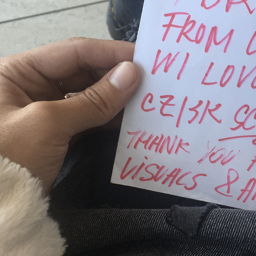 FROM
WI LOV
CZ/SK SC
THANK YOU F
VISUALS & A